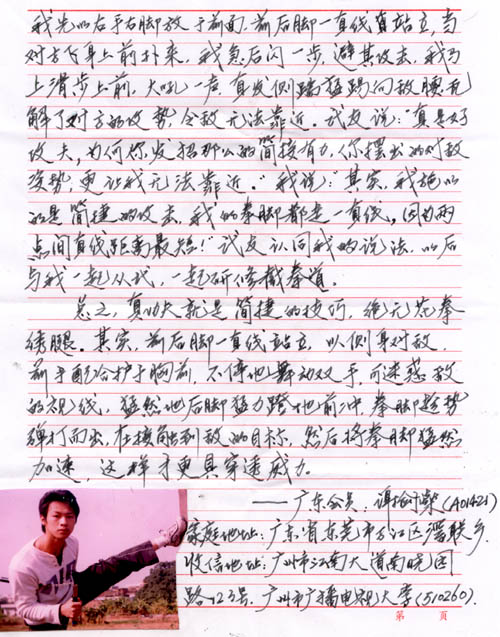 我先以右手右脚放于前面,前后脚一直线直站立,当
对方飞身上前扑来,我急后闪一步,避其攻击,我乃
上滑步上前,大吼一声,直发侧踹猛踢向敌腰,瓦
解了对方的攻势,令敌无法靠近。武友说:"真是好
攻夫,为何你发招那么的简接有力,你摆出的对敌
姿势,更让我无法靠近。"我说:"其实,我施以
的是简捷的攻击,我的拳脚都走一直线,因为两
点间直线距离最短!"武友认同我的说法,以后
与我一起从武,一起研修截拳道。
总之,真功夫就是简捷的技巧,绝无花拳
绣腿。其实,前后脚一直线站立,以侧身对敌,
前手配合护于胸前,不停地舞动双手,可迷惑敌
的视线,猛然地后脚猛力蹬地前冲,拳脚趁势
弹打而出,在接触到敌的目标,然后将拳脚猛然
加速,这样才更具穿透威力。
——广东会员、谭(A01421)
家庭地址:广东省东莞市万江区滘联乡.
收信地址:广州市江南大道南晓园
路123号.广州市广播电视大学(510260).
第 页